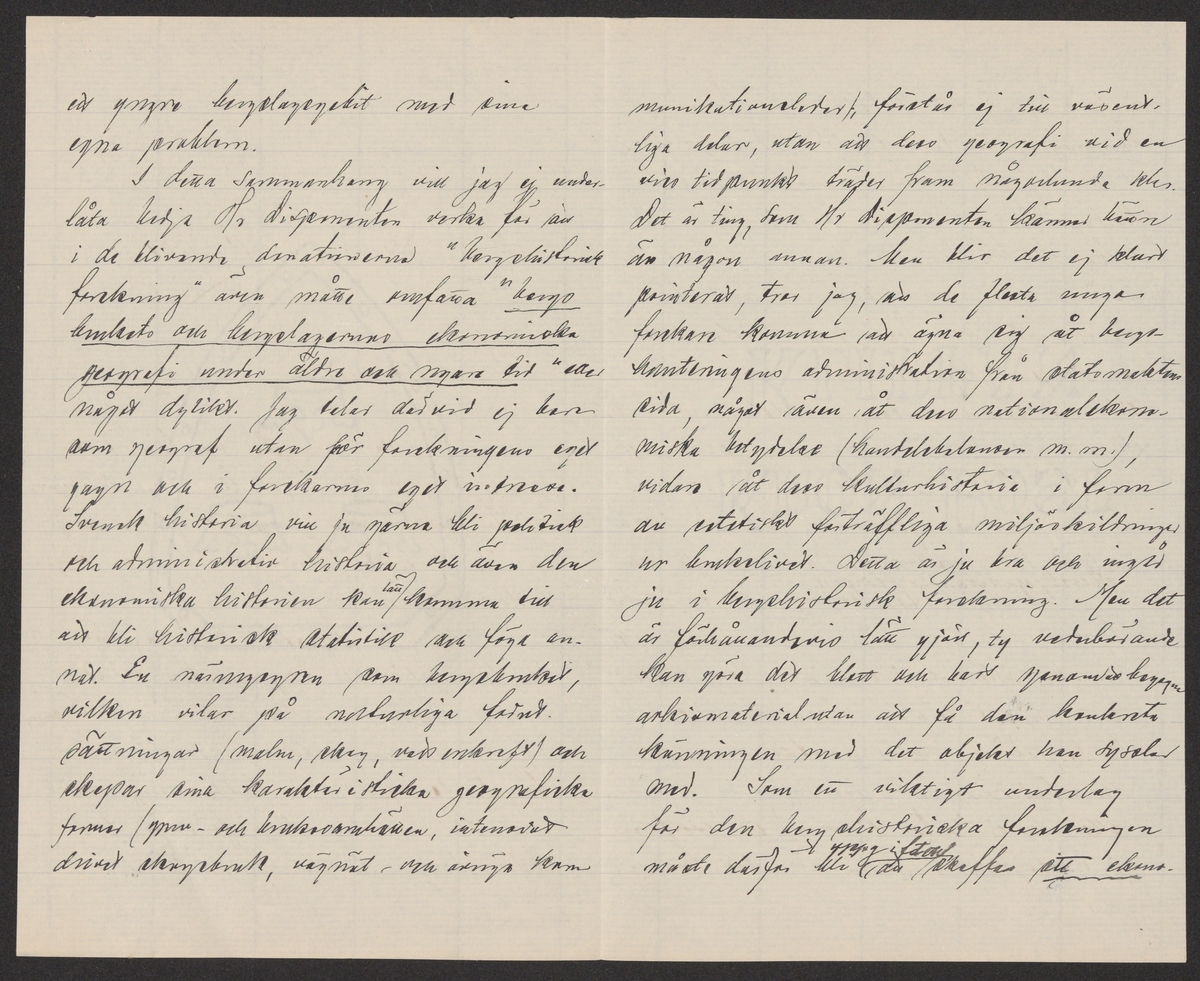 ett yngre bergslagsgebit med sina
egna problem.
I detta sammanhang vill jag ej under-
låta bedja Hr Disponenten verka för att
i de blivande donationerna "bergshistorisk
forskning" även måtte omfatta "bergs
brukets och bergslagernas ekonomiska
geografi under äldre och nyare tid" eller
något dylikt. Jag talar därvid ej bara
som geograf utan för forskningens eget
gagn och i forskarnes eget intresse.
Svensk historia vill ju gärna bli politisk
och administrativ historia och även den
ekonomiska historien kan lätt komma till
att bli historisk statistik och föga an-
nat. En näringsgren som bergsbruket,
vilken vilar på naturliga förut-
sättningar (malm, skog, vattenkraft) och
skapar sina karakteristiska geografiska
former (gruv- och brukssamhällen, intensivt
drivet skogsbruk, vägnät- och övriga kom
munikationsleder), förstås ej till väsent-
liga delar, utan att dess geografi vid en
viss tidpunkt träder fram någorlunda klar.
Det är ting, som Hr Disponenten känner bättre
än någon annan. Men blir det ej klart
pointerat, tror jag, att de flesta unga
forskare komma att ägna sig åt bergs-
hanteringens administration från statsmaktens
sida, något även åt dess nationalekono-
miska betydelse (handelsbalansen m. m.),
vidare åt dess kulturhistoria i form
av estetiskt förträffliga miljöskildringar
ur brukslivet. Detta är ju bra och ingår
ju i bergshistorisk forskning. Men det
är förhållandevis lätt gjort, ty vederbörande
kan göra det blott och bart genom
arkivmaterial utan att få den konkreta
känningen med det objekt han sysslar
med. Som ett viktigt underlag
för den bergshistoriska forskningen
måste därför bli att skaffa ett ekono-